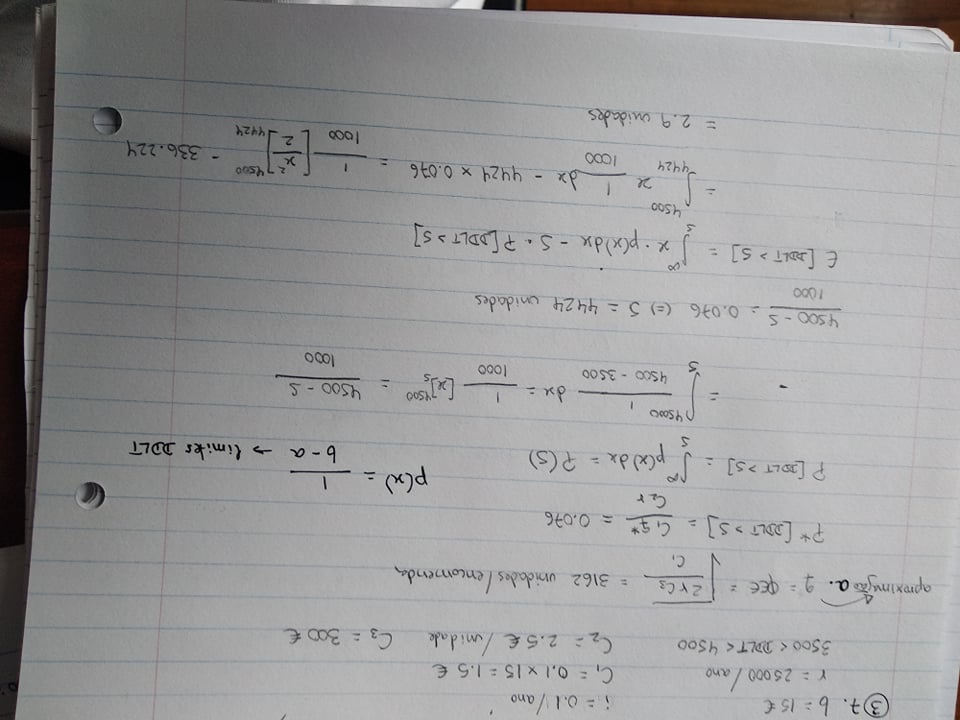 ③ 7. b = 15 € i = 0.1 /ano
r = 25000 /ano C₁ = 0.1 × 15 = 1.5 €
3500 < DDLT < 4500 C₂ = 2.5 € /unidade C₃ = 300 €
aproximação a. q = QEE = √(2rC₃ / C₁) = 3162 unidades/encomenda
P* [DDLT > S] = C₁ q* / C₂ r = 0.076
P [DDLT > S] = ∫_S^∞ p(x) dx = P(S) p(x) = 1 / (b - a) → limites DDLT
= ∫_S^45000 1 / (4500 - 3500) dx = 1/1000 [x]_S^4500 = (4500 - S) / 1000
(4500 - S) / 1000 = 0.076 (=) S = 4424 unidades
E [DDLT > S] = ∫_S^∞ x · p(x) dx - S · P[DDLT > S]
= ∫_4424^4500 x 1/1000 dx - 4424 × 0.076 = 1/1000 [x²/2]_4424^4500 - 336.224
= 2.9 unidades